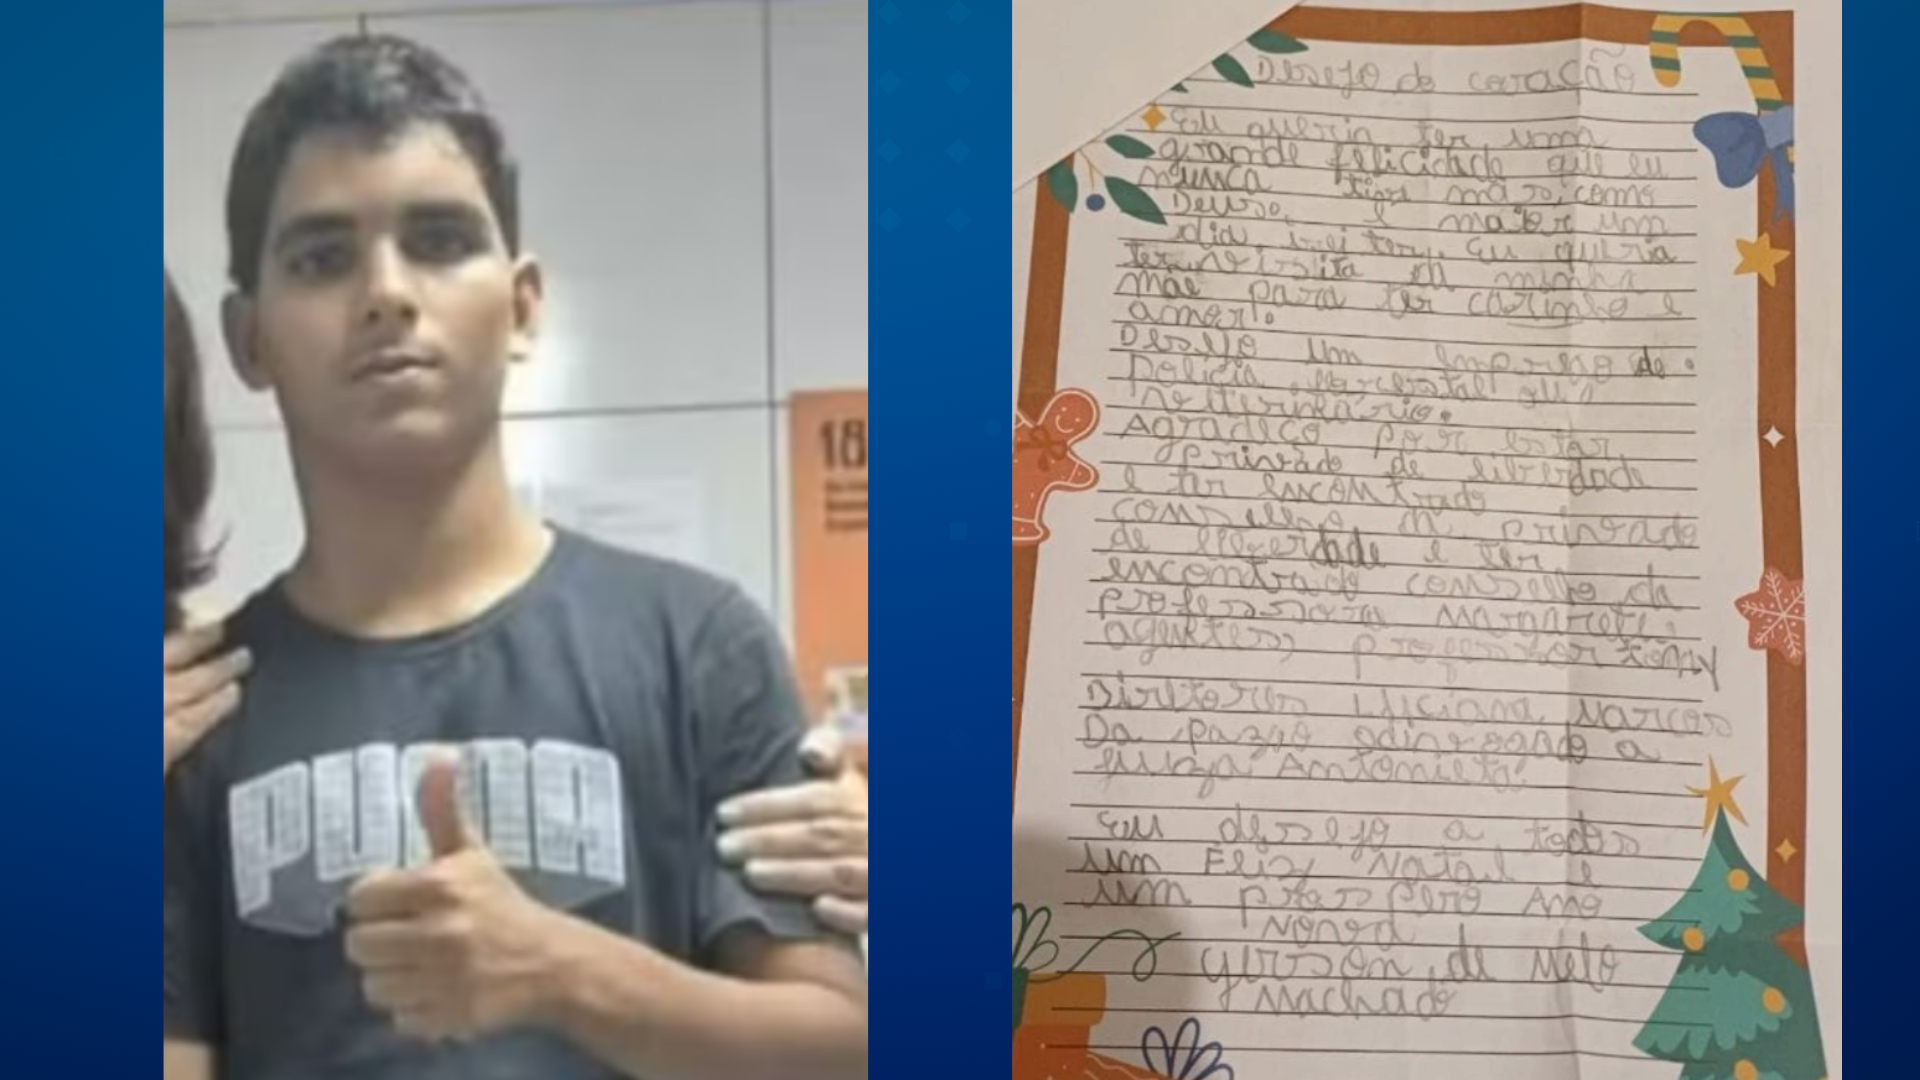 18
PUMA
Desejo do coração
Eu queria ter uma
grande felicidade que eu
nunca tive mas, como
Deus, é maior um
dia, irei ter. Eu queria
ter visita da minha
mãe para ter carinho e
amor.
Desejo um emprego de
Policia, Florestal ou
Agradeço por estar
privado de liberdade
e ter encontrado
conselho da privado
de liberdade e ter
encontrado conselho da
professora Margarete,
agentes, professor Tony
Diretores Luciana Marcos
Da paz, o a
Antonieta.
Eu desejo a todos
um Feliz Natal e
um prospero Ano
Novo
Gerson de Melo
Machado